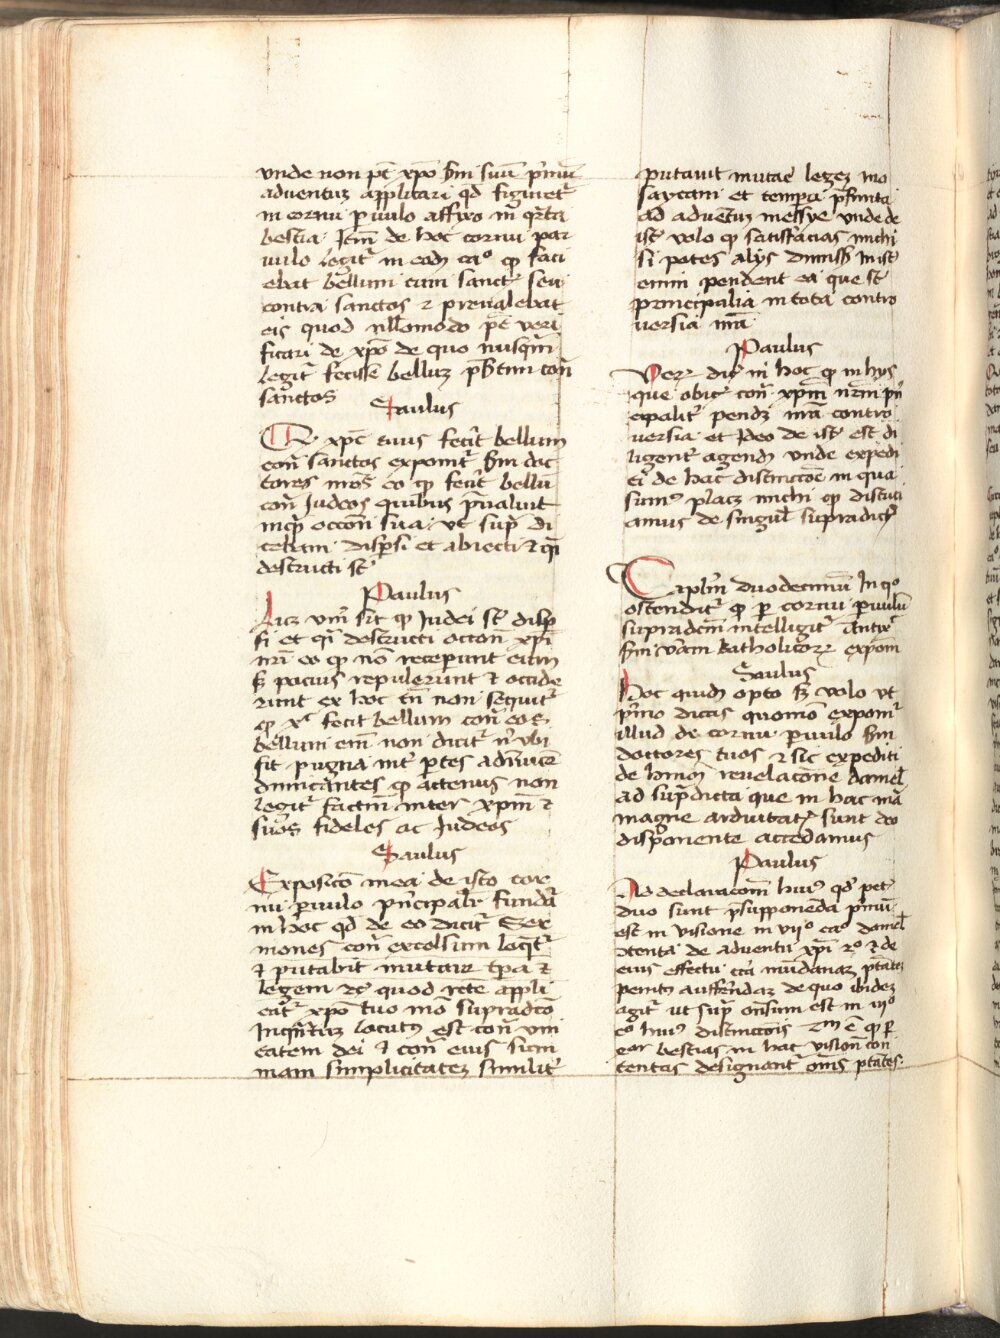 vnde non pt̄ xp̄o scd̄m suū p̄mū
aduentuz applicari qd̄ figuret᷑
in cornu p̱uulo affixo in q̄rta
bestia Item de hoc cornu par
uulo legit᷑ in eod̄ caº ꝙ faci
ebat bellum cum sanct̄ seu
contra sanctos ⁊ preualebat
eis quod nllomodo pt̄ veri
ficari de xp̄o de quo nusq̄m
legit᷑ fecisse belluz p̄sertim con̄
sanctos
Saulus
Q xp̄c tuus fecit bellum
con̄ sanctos exponit᷑ scd̄m doc
tores nr̄os eo ꝙ fecit bellū
con̄ Judeos quibus p̄ualuit
inq̄ occon̄ sua vt sup̄ di
cebam disp̱si et abiecti ⁊ q̄i
destructi st̄
Paulus
Licz vm̄ sit ꝙ Judei st̄ disp̱
si et q̄i destructi occon̄ xp̄i
nr̄i eo ꝙ nō receperunt eum
s̄ pocius repulerunt ⁊ occide
runt ex hoc tn̄ non sequit᷑
ꝙ xᵖ fecit bellum con̄ eos
bellum em̄ non dicit᷑ n̄ vbi
fit pugna int᷑ p̱tes adinuicē
dimicantes ꝙ actenus non
legit᷑ factum inter xpm̄ ⁊
suos fideles ac Judeos
Saulus
Exposicō mea de isto cor
nu p̱uulo p̄ncipalr̄ fundat᷑
in hoc qd̄ de eo dicit᷑ Ser
mones con̄ excelsum loq̄t᷑
⁊ putabit mutare tp̱a ⁊
legem ⁊c̄ quod recte appli
cat᷑ xp̄o tuo mō supradicō
Inq̄ntuz locutus est con̄ vni
tatem dei ⁊ con̄ eius sum
mam simplicitatez similit᷑
putauit mutare legez mo
saycam et tempora p̄finita
ad aduentuz messye vnde de
ist̄ volo ꝙ satisfacias michi
si potes alijs dimissis In ist̄
enim pendent ea que st̄
principalia in tota contro
versia nr̄a
Paulus
Vere dic̄ in hoc ꝙ in hys
que obic̄ con̄ xpm̄ nr̄m pn̄
cipalit᷑ pendz nr̄a contro
uersia et Ideo de ist̄ est di
ligent᷑ agend̄ vnde expedi
ti de hac distinctōe in qua
sumꝰ placz michi ꝙ discuci
amus de singul̄ supradict̄
Caplm̄ duodecimū In qº
ostendit᷑ ꝙ p̱ cornu p̱uulū
supradcm̄ intelligit᷑ Antix᷑
scd̄m vam̄ katholicorꝝ expom̄
Saulus
Hoc quid̄ opto s̄ volo vt
p̄mo dicas quomō exponit᷑
illud de cornu p̱uulo scd̄m
doctores tuos ⁊ sic expediti
de huiusm̄ reuelacōne daniel̄
ad sup̄dicta que in hac nr̄a
magne arduitatis sunt deo
disponente accedamus
Paulus
Ad declaracom̄ huiꝰ qd̄ pet̄
duo sunt p̄supponenda p̄mū
est in visione in vijº caº daniel̄
ↄtenta de aduentu xp̄i ⁊ de
eius effectu ca mūdanaz ptātez
penitus aufferendaz de quo ibidez
agit᷑ ut sup̄ on̄sum est in iijº
cº huiꝰ distinctōis 2m ē ꝙ p̱
eor bestias in hac vision̄ con
tentas designant᷑ om̄s ptātes